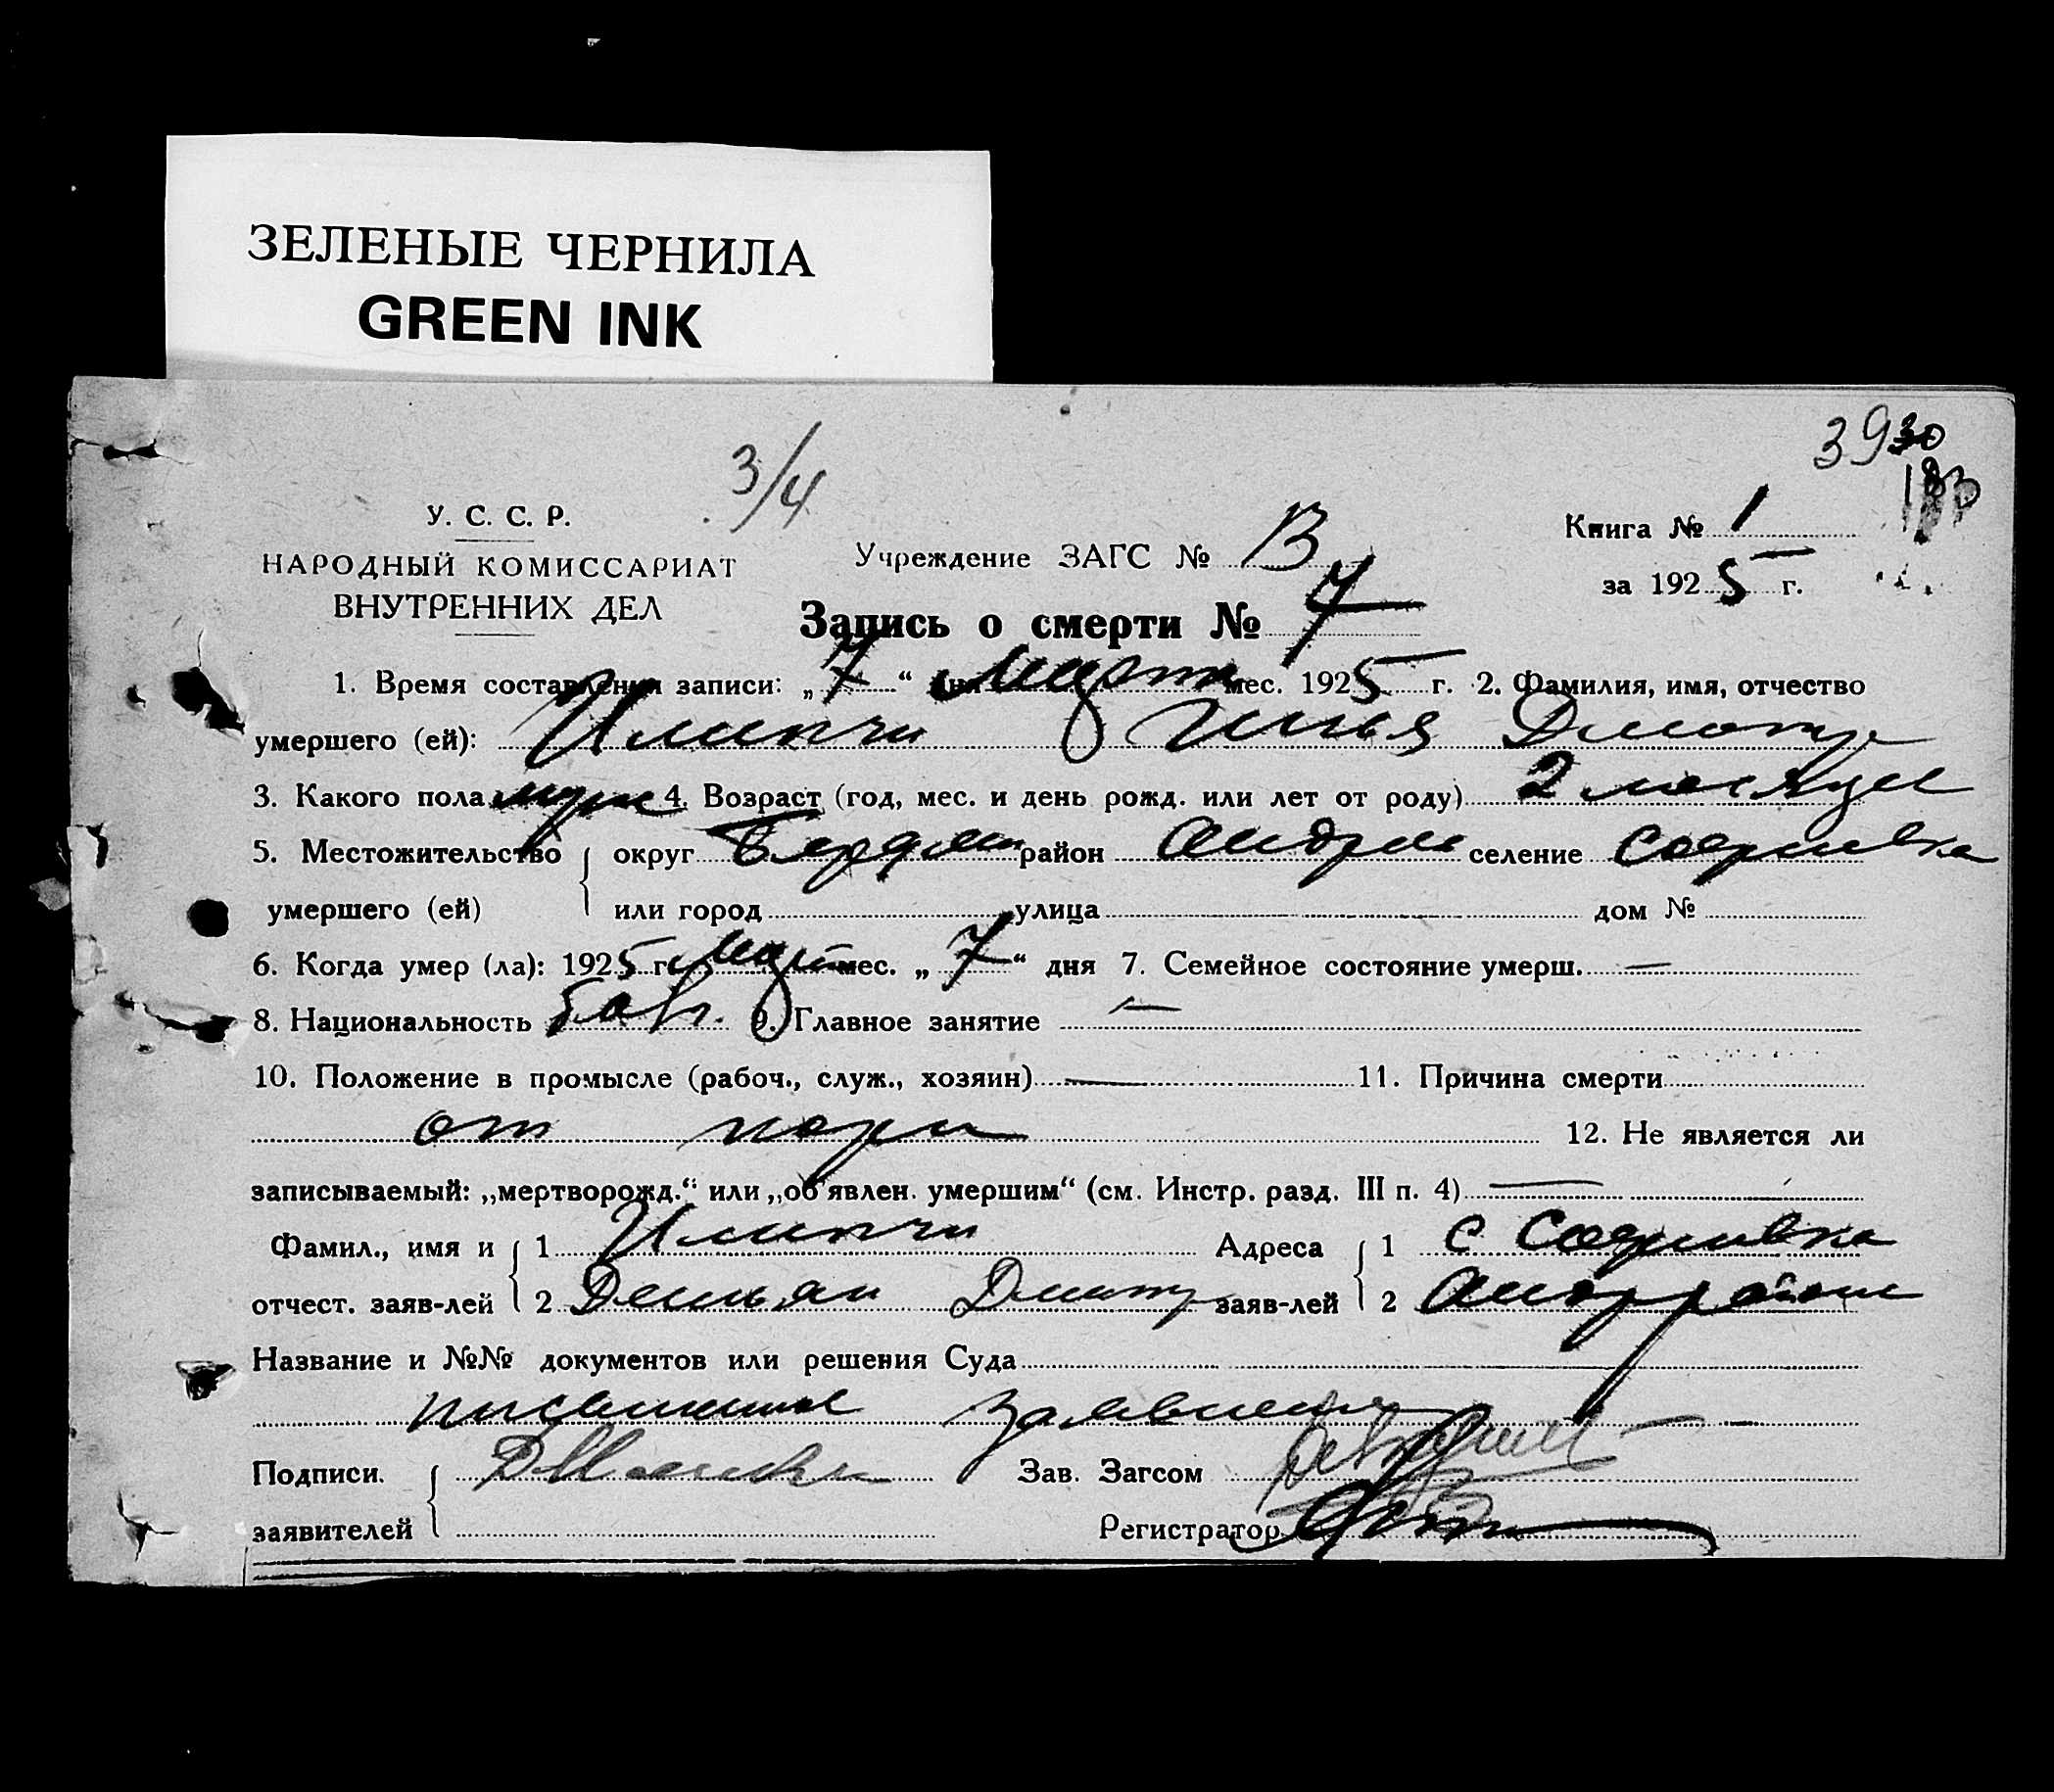 ЗЕЛЕНЫЕ ЧЕРНИЛА
GREEN INK
39 30
3/4
У. С. С. Р.
НАРОДНЫЙ КОМИССАРИАТ
ВНУТРЕННИХ ДЕЛ
Учреждение ЗАГС № В
Книга № 1
за 1925 г.
Запись о смерти № 7
1. Время составления записи: „7“ дня март мес. 1925 г. 2. Фамилия, имя, отчество
умершего (ей): Илинчи Илья Дмитр
3. Какого пола муж 4. Возраст (год, мес. и день рожд. или лет от роду) 2 месяца
5. Местожительство округ Бердян район Андре селение
умершего (ей) или город улица дом №
6. Когда умер (ла): 1925 г. март мес. „7“ дня 7. Семейное состояние умерш. —
8. Национальность болг. 9. Главное занятие —
10. Положение в промысле (рабоч., служ., хозяин) — 11. Причина смерти
от кори 12. Не является ли
записываемый: „мертворожд.“ или „об'явлен. умершим“ (см. Инстр. разд. III п. 4) —
Фамил., имя и 1 Илинчи Адреса 1 с
отчест. заяв-лей 2 Демьян Дмитр заяв-лей 2 Андр района
Название и №№ документов или решения Суда
письменное заявление
Подписи. Зав. Загсом
заявителей Регистратор